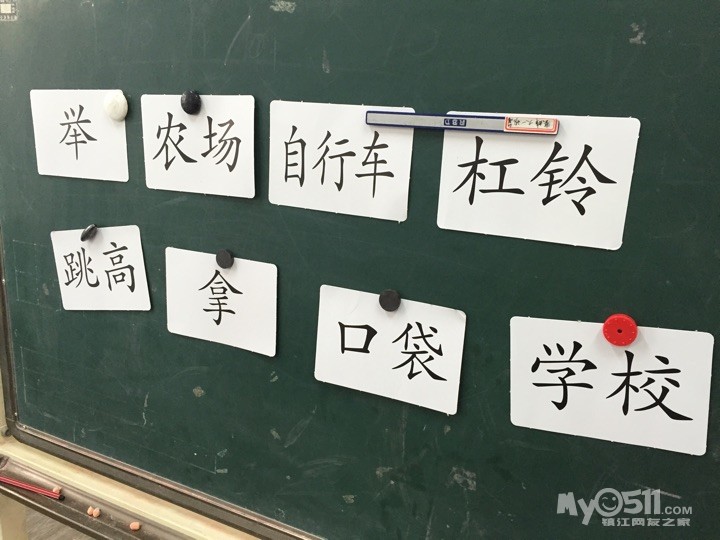 举 农场 自行车 杠铃
跳高 拿 口袋 学校
My0511.COM
镇江网友之家